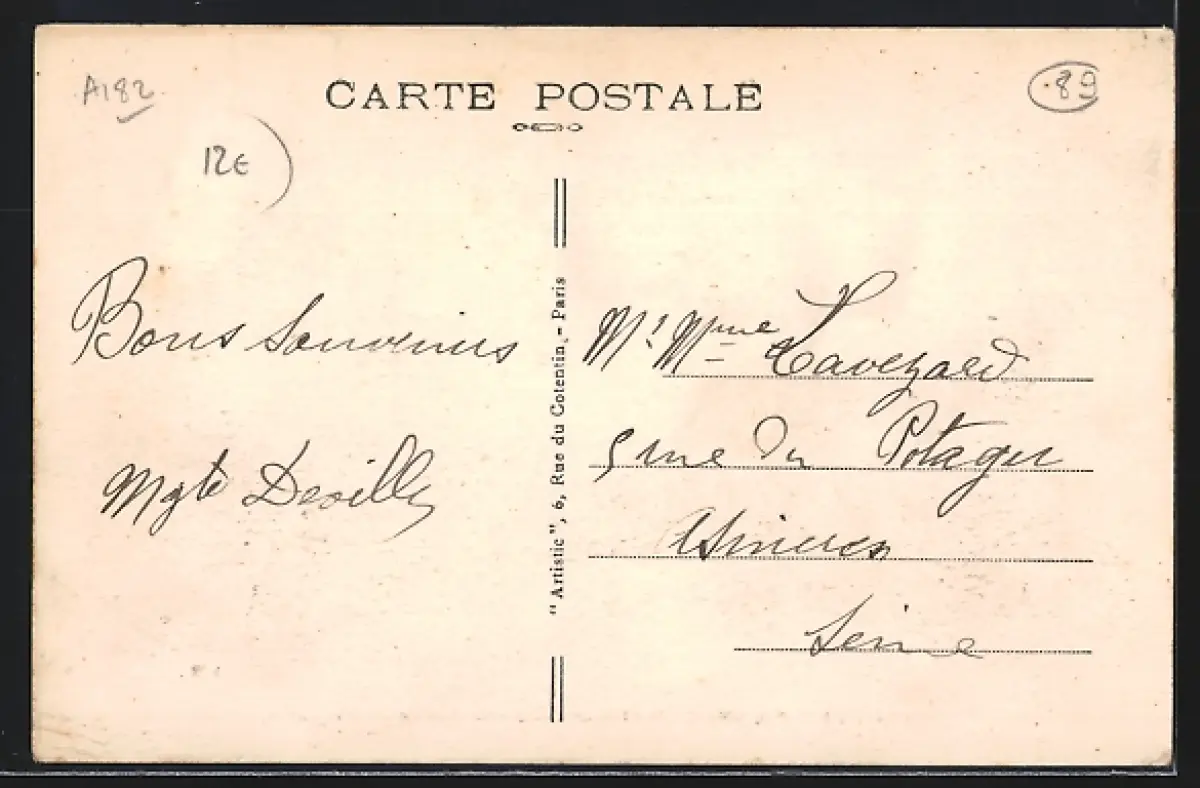 A182
CARTE POSTALE
89
12€
Bons Souvenirs
Mgte Devilly
"Artistic", 6, Rue du Cotentin, - Paris
Mr Mme Lavezard
5 rue du Potager
Asnieres
Seine